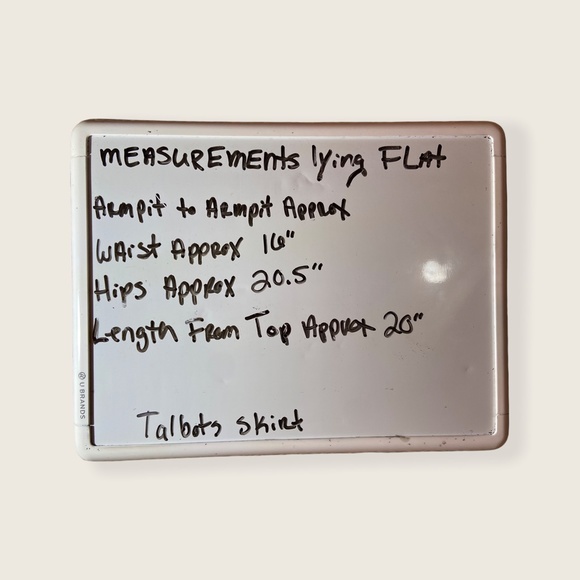 MEASUREMENts lying FLAt
Armpit to Armpit Approx
Waist Approx 16"
Hips Approx 20.5"
Length From Top Approx 20"
U BRANDS
Talbots skirt